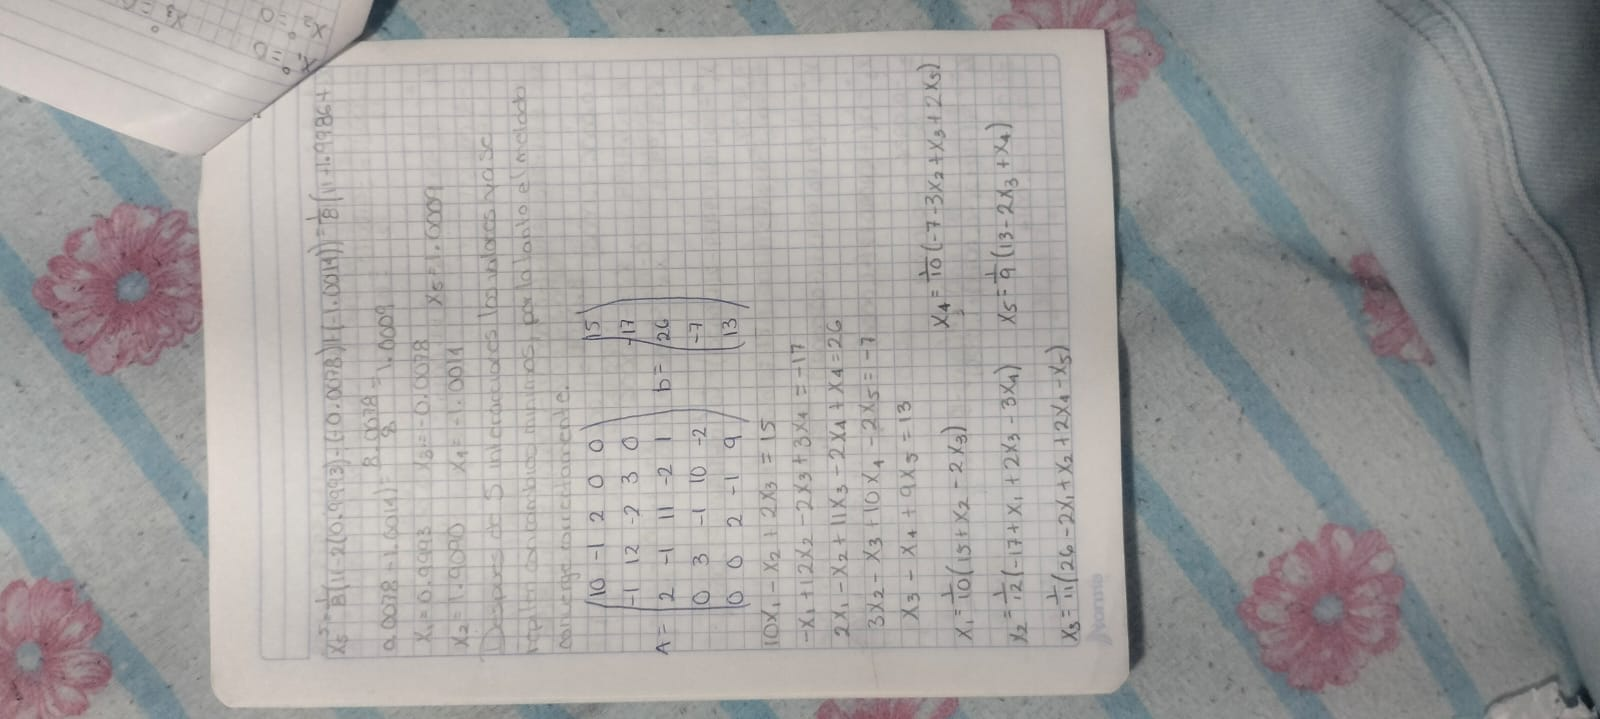 x₅⁵ = 1/8(11-2(0.9993)-(-0.0078)+(-1.0014)) = 1/8(11-1.9986+
0.0078-1.0014) = 8.0078/8 = 1.0009
x₁=0.9993 x₃=-0.0078 x₅=1.0009
x₂=1.9090 x₄=-1.0014
Despues de 5 interaciones los valores ya se
repiten con cambios minimos, por lo tanto el metodo
converge correctamente.
A= (10 -1 2 0 0 b= (15
-1 12 -2 3 0 -17
2 -1 11 -2 1 26
0 3 -1 10 -2 -7
0 0 2 -1 9) 13)
10x₁ - x₂ + 2x₃ = 15
-x₁ + 12x₂ - 2x₃ + 3x₄ = -17
2x₁ - x₂ + 11x₃ - 2x₄ + x₄ = 26
3x₂ - x₃ + 10x₄ - 2x₅ = -7
x₃ - x₄ + 9x₅ = 13
x₁ = 1/10(15+x₂-2x₃) x₄ = 1/10(-7-3x₂+x₃+2x₅)
x₂ = 1/12(-17+x₁+2x₃-3x₄) x₅ = 1/9(13-2x₃+x₄)
x₃ = 1/11(26-2x₁+x₂+2x₄-x₅)
Norma